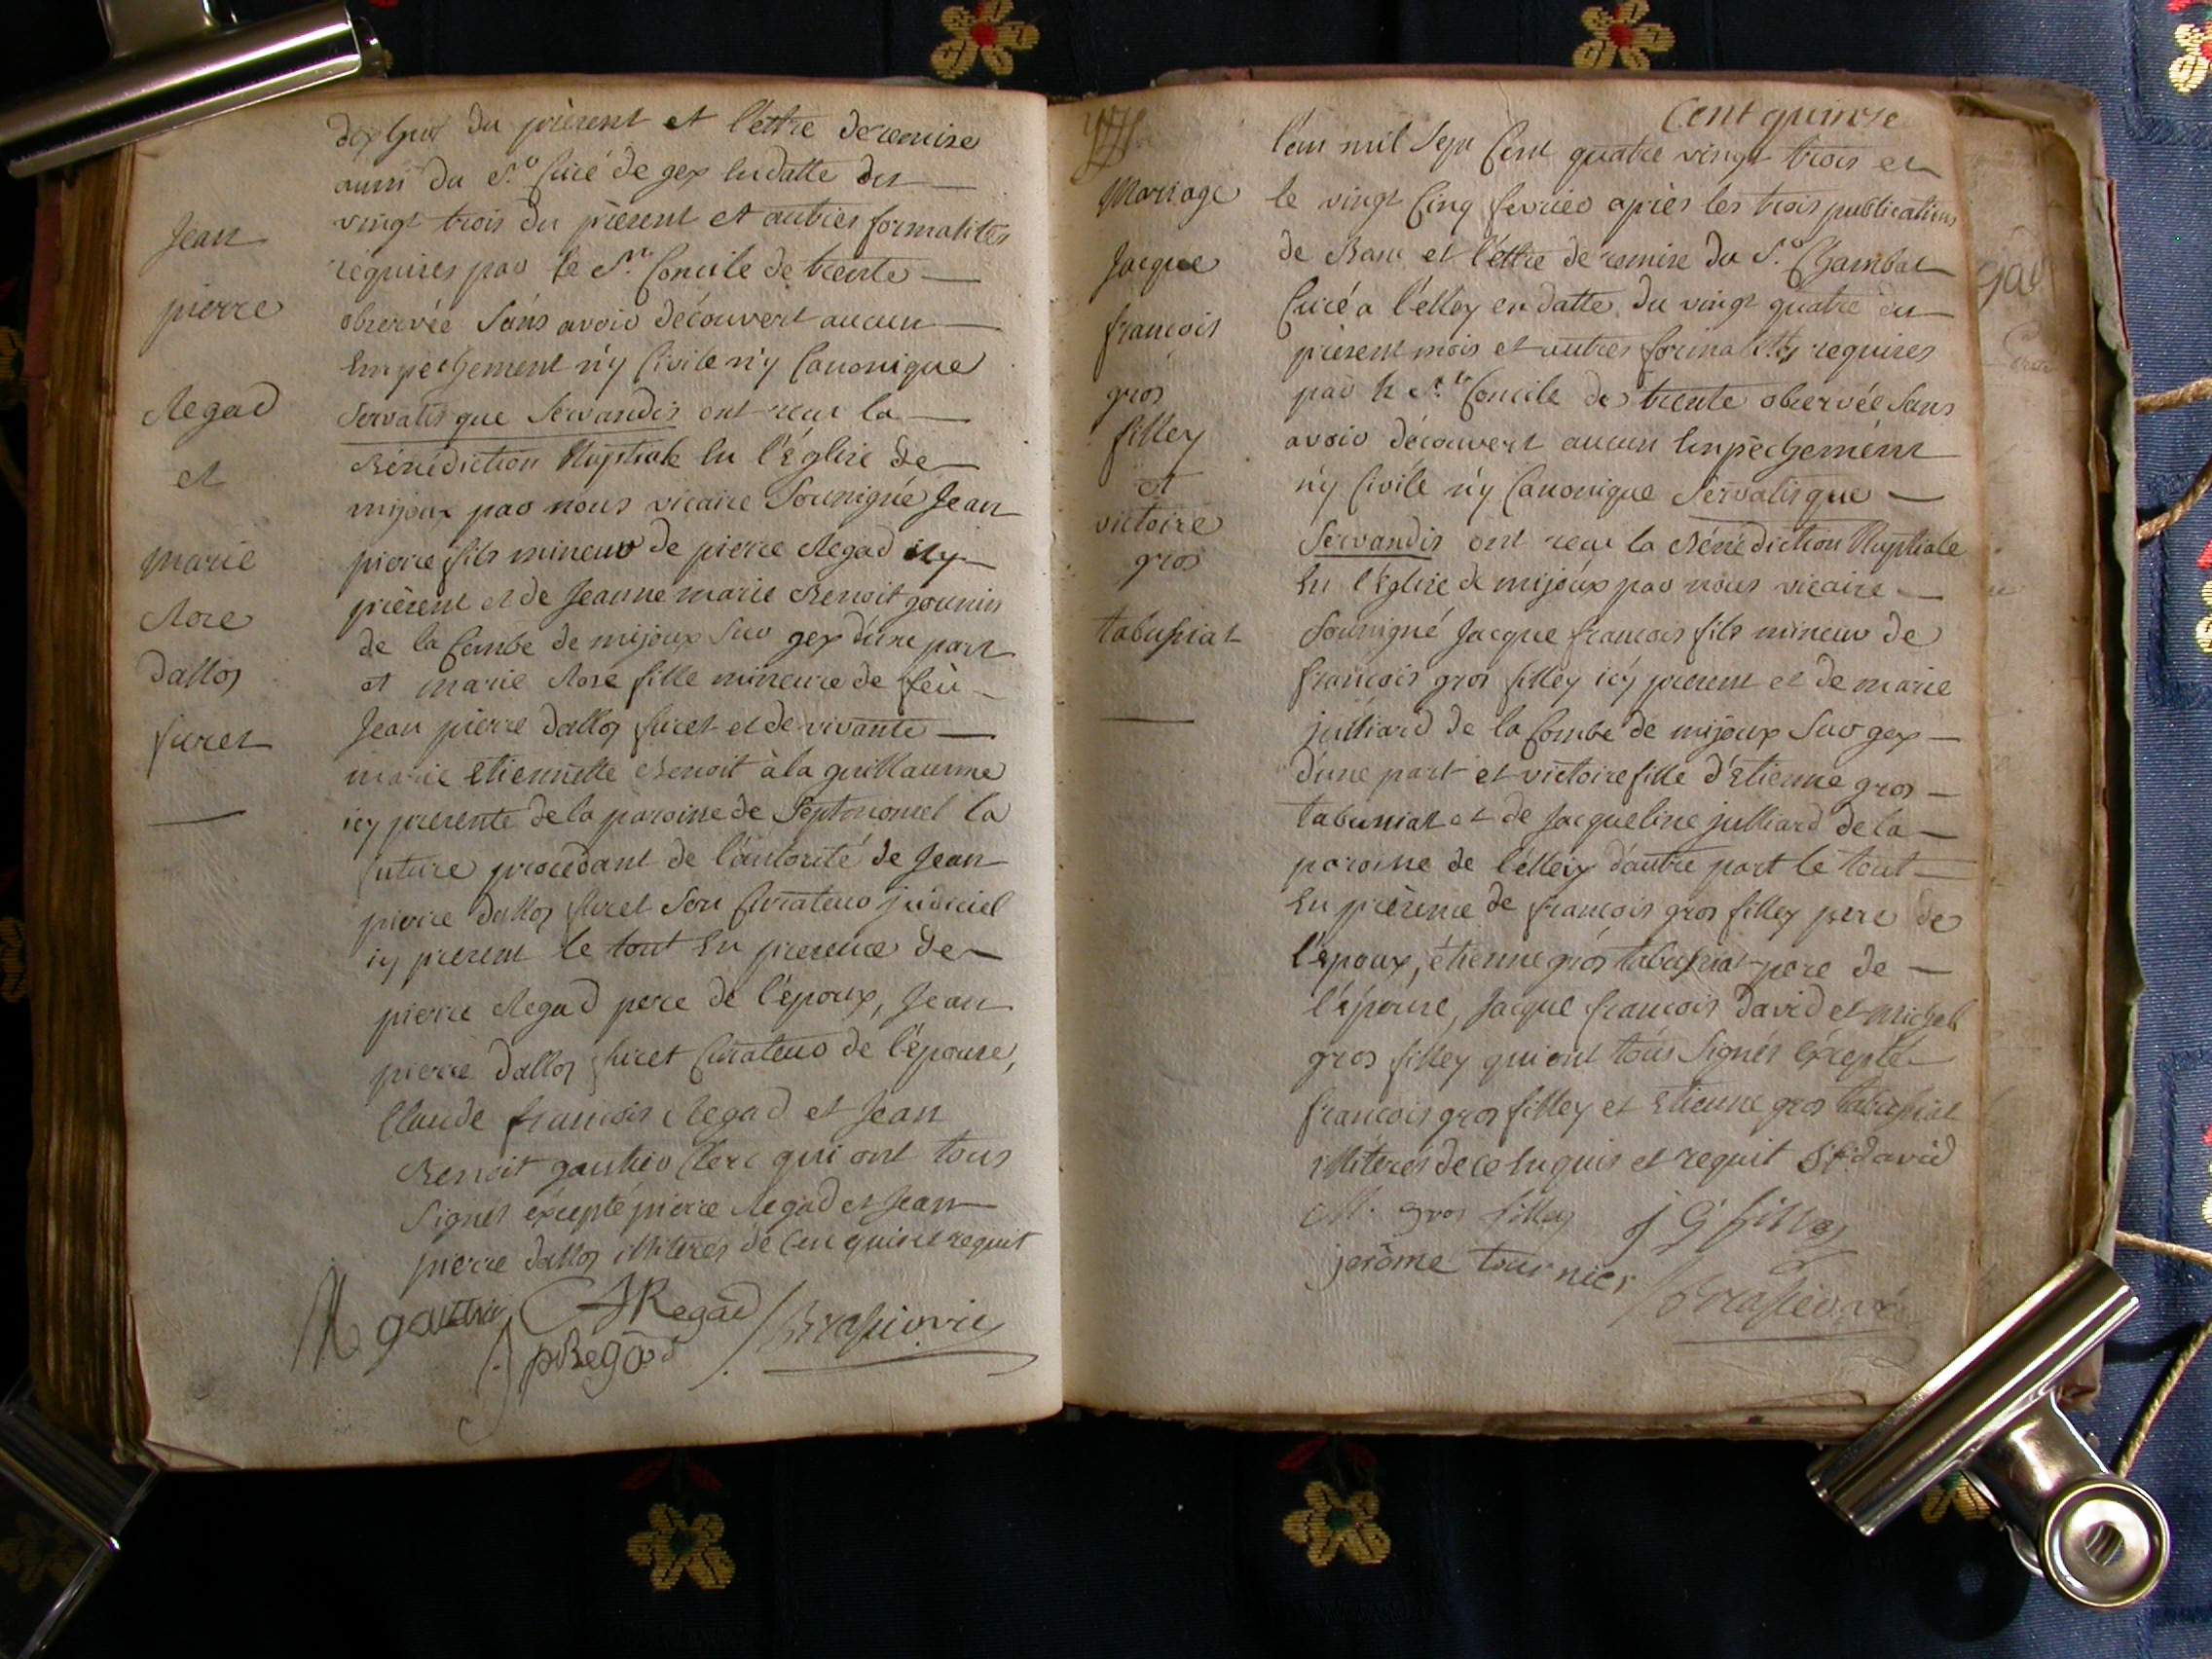 Jean
pierre
Regad
et
marie
Rose
dalloz
furet
dix huit du prèsent et l'ettre de remise
aussi du Sr. Curé de gex en datte du
vingt trois du prèsent et autres formalités
requises par le St. Concile de trente
observée Sans avoir découvert aucun
Empechement n'y Civile n'y Canonique
Servatis que Servandis ont reçu la
Bénédiction Nuptiale En l'Église de
mijoux par nous vicaire Soussignée Jean
pierre fils mineur de pierre Regad icy
prèsent et de Jeanne marie Benoit gounin
de la Combe de mijoux Sur gex d'une part
et marie Rose fille mineure de feù
Jean pierre dalloz furet et de vivante
marie Etiennette Benoit à la guillaume
icy presente de la paroisse de Septmoncel la
future procedant de l'autorité de Jean
pierre dalloz furet Son Curateur judiciel
icy present le tout En presence de
pierre Regad pere de l'époux, Jean
pierre dalloz furet Curateur de l'épouse,
Claude francois Regad et Jean
Benoit gauthier Clerc qui ont tous
Signés éxcepté pierre Regad et Jean
pierre dalloz illiterés de ce enquis et requit
gauthier CfRegad
jpRegad
Cent quinze
Mariage
Jacque
francois
gros
filley
et
victoire
gros
tabussiat
l'an mil Sept Cent quatre vingt trois et
le vingt Cinq fevrier après les trois publications
de Banc et l'ettre de remise du Sr. Chambat
Curé a l'elley en datte du vingt quatre du
prèsent mois et autres formalités requises
par le St. Concile de trente observée Sans
avoir découvert aucun Empêchement
n'y Civile n'y Canonique Servatis que
Servandis ont reçu la Bénédiction Nuptiale
En l'église de mijoux par nous vicaire
Soussigné Jacque francois fils mineur de
francois gros filley icy present et de marie
julliard de la Combe de mijoux Sur gex
d'une part et victoire fille d'Etienne gros
tabussiat et de Jacqueline julliard de la
paroisse de l'elley d'autre part le tout
En prèsence de francois gros filley pere de
l'époux, étienne gros tabussiat pere de
l'épouse, Jacque francois david et michel
gros filley qui ont tous Signés éxcepté
francois gros filley et Etienne gros tabussiat
illiterés de ce enquis et requit david
M. gros filley j G filley
jerôme tournier